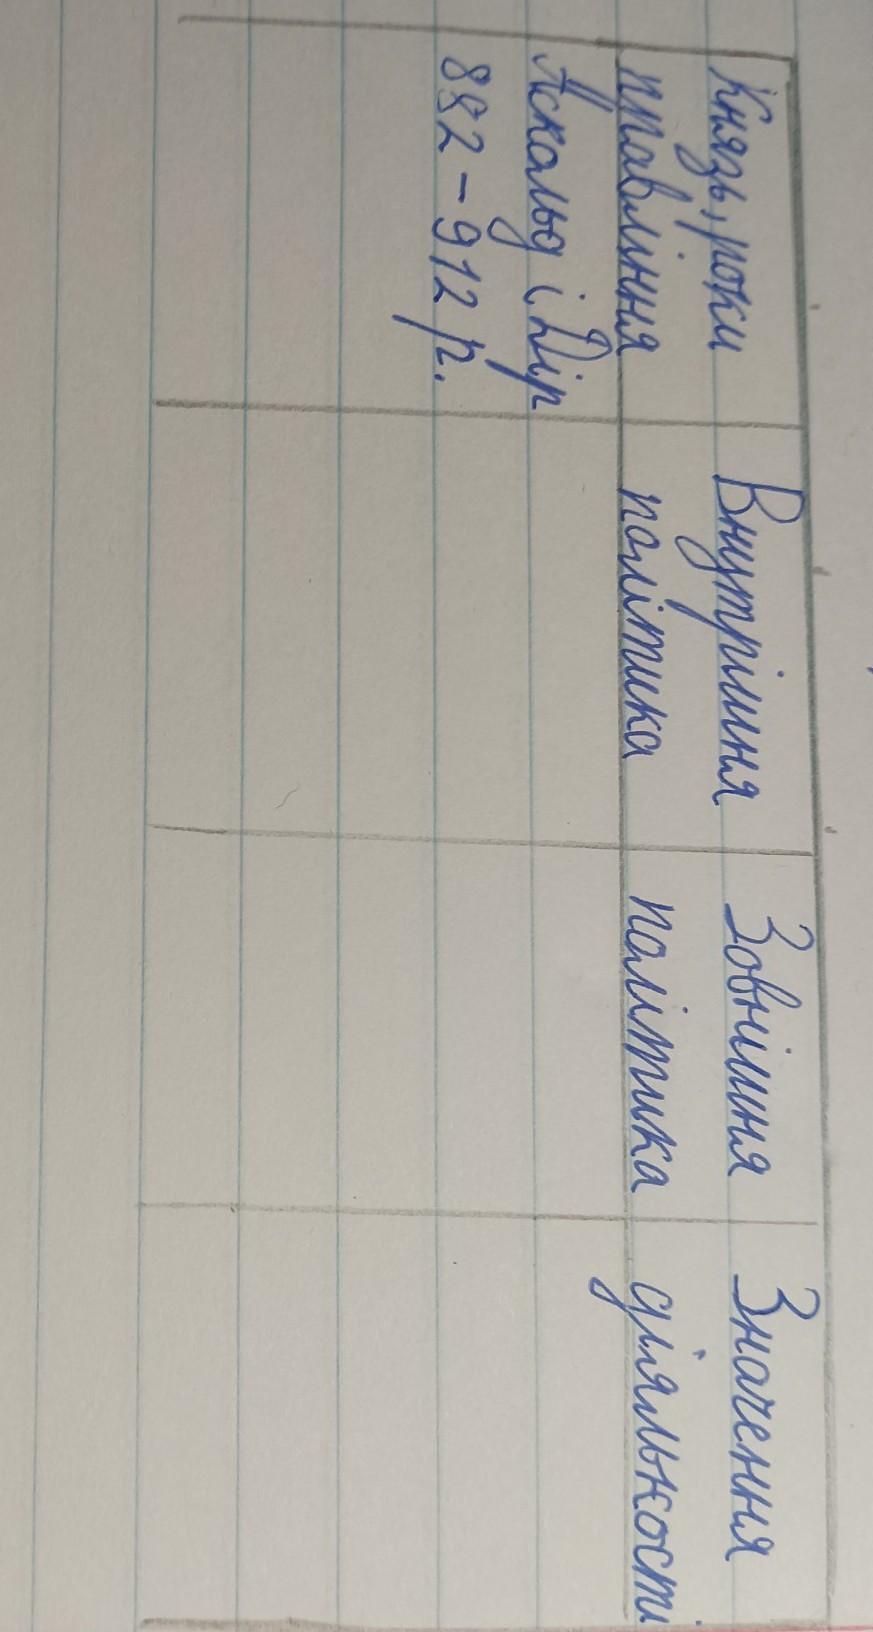 Князь, роки
правління
Внутрішня
політика
Зовнішня
політика
Значення
діяльності
Аскольд і Дір
882 – 912 р.